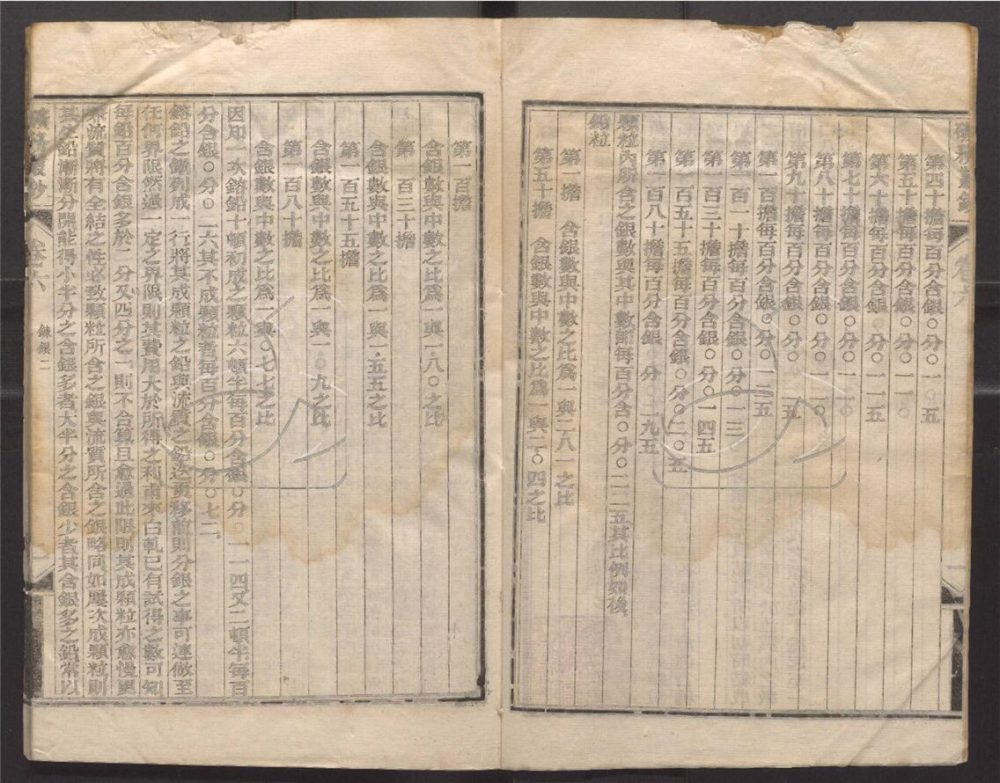 第四十擔每百分含銀〇分〇一〇五
第五十擔每百分含銀〇分〇一一〇
第六十擔每百分含銀〇分〇一一五
第七十擔每百分含銀〇分〇一一〇
第八十擔每百分含銀〇分〇一一〇
第九十擔每百分含銀〇分〇一
第一百擔每百分含銀〇分〇一二五
第一百一十擔每百分含銀〇分〇一三
第一百三十擔每百分含銀〇分〇一四五
第一百五十五擔每百分含銀〇分〇二〇五
第一百八十擔每百分含銀 分〇一九五
顆粒內所含之銀數與其中數即每百分含〇分〇一二二五其比例如後
第一擔 含銀數與中數之比為一與二八一之比
第五十擔 含銀數與中數之比為一與二〇四之比
第一百擔
含銀數與中數之比為一與一八〇之比
第一百三十擔
含銀數與中數之比為一與一五五之比
第一百五十五擔
含銀數與中數之比為一與一〇九之比
第一百八十擔
含銀數與中數之比為一與〇七七之比
因此一次鎔鉛十頓初成之顆粒六頓半每百分含銀〇分〇一一四又二頓半每百
分含銀〇分〇一六其不成顆粒者每百分含銀〇分〇七二
鎔鉛之鍋列成一行將其成顆粒之鉛與流質之鉛迭更移前則分銀之事可連做至
任何界限然過一定之界限則其費用大於所得之利甫來白軋已有試得之數可知
每鉛百分含銀多於一分又四分之一則不合算且愈過此限則其成顆粒亦愈慢更
流質將有全結之性必致顆粒所含之銀與流質所含之銀略同如屢次成顆粒則
其生鉛漸漸分開能得小半分之含銀多者大半分之含銀少者其含銀多之鉛常以
卷六
鍊銀二